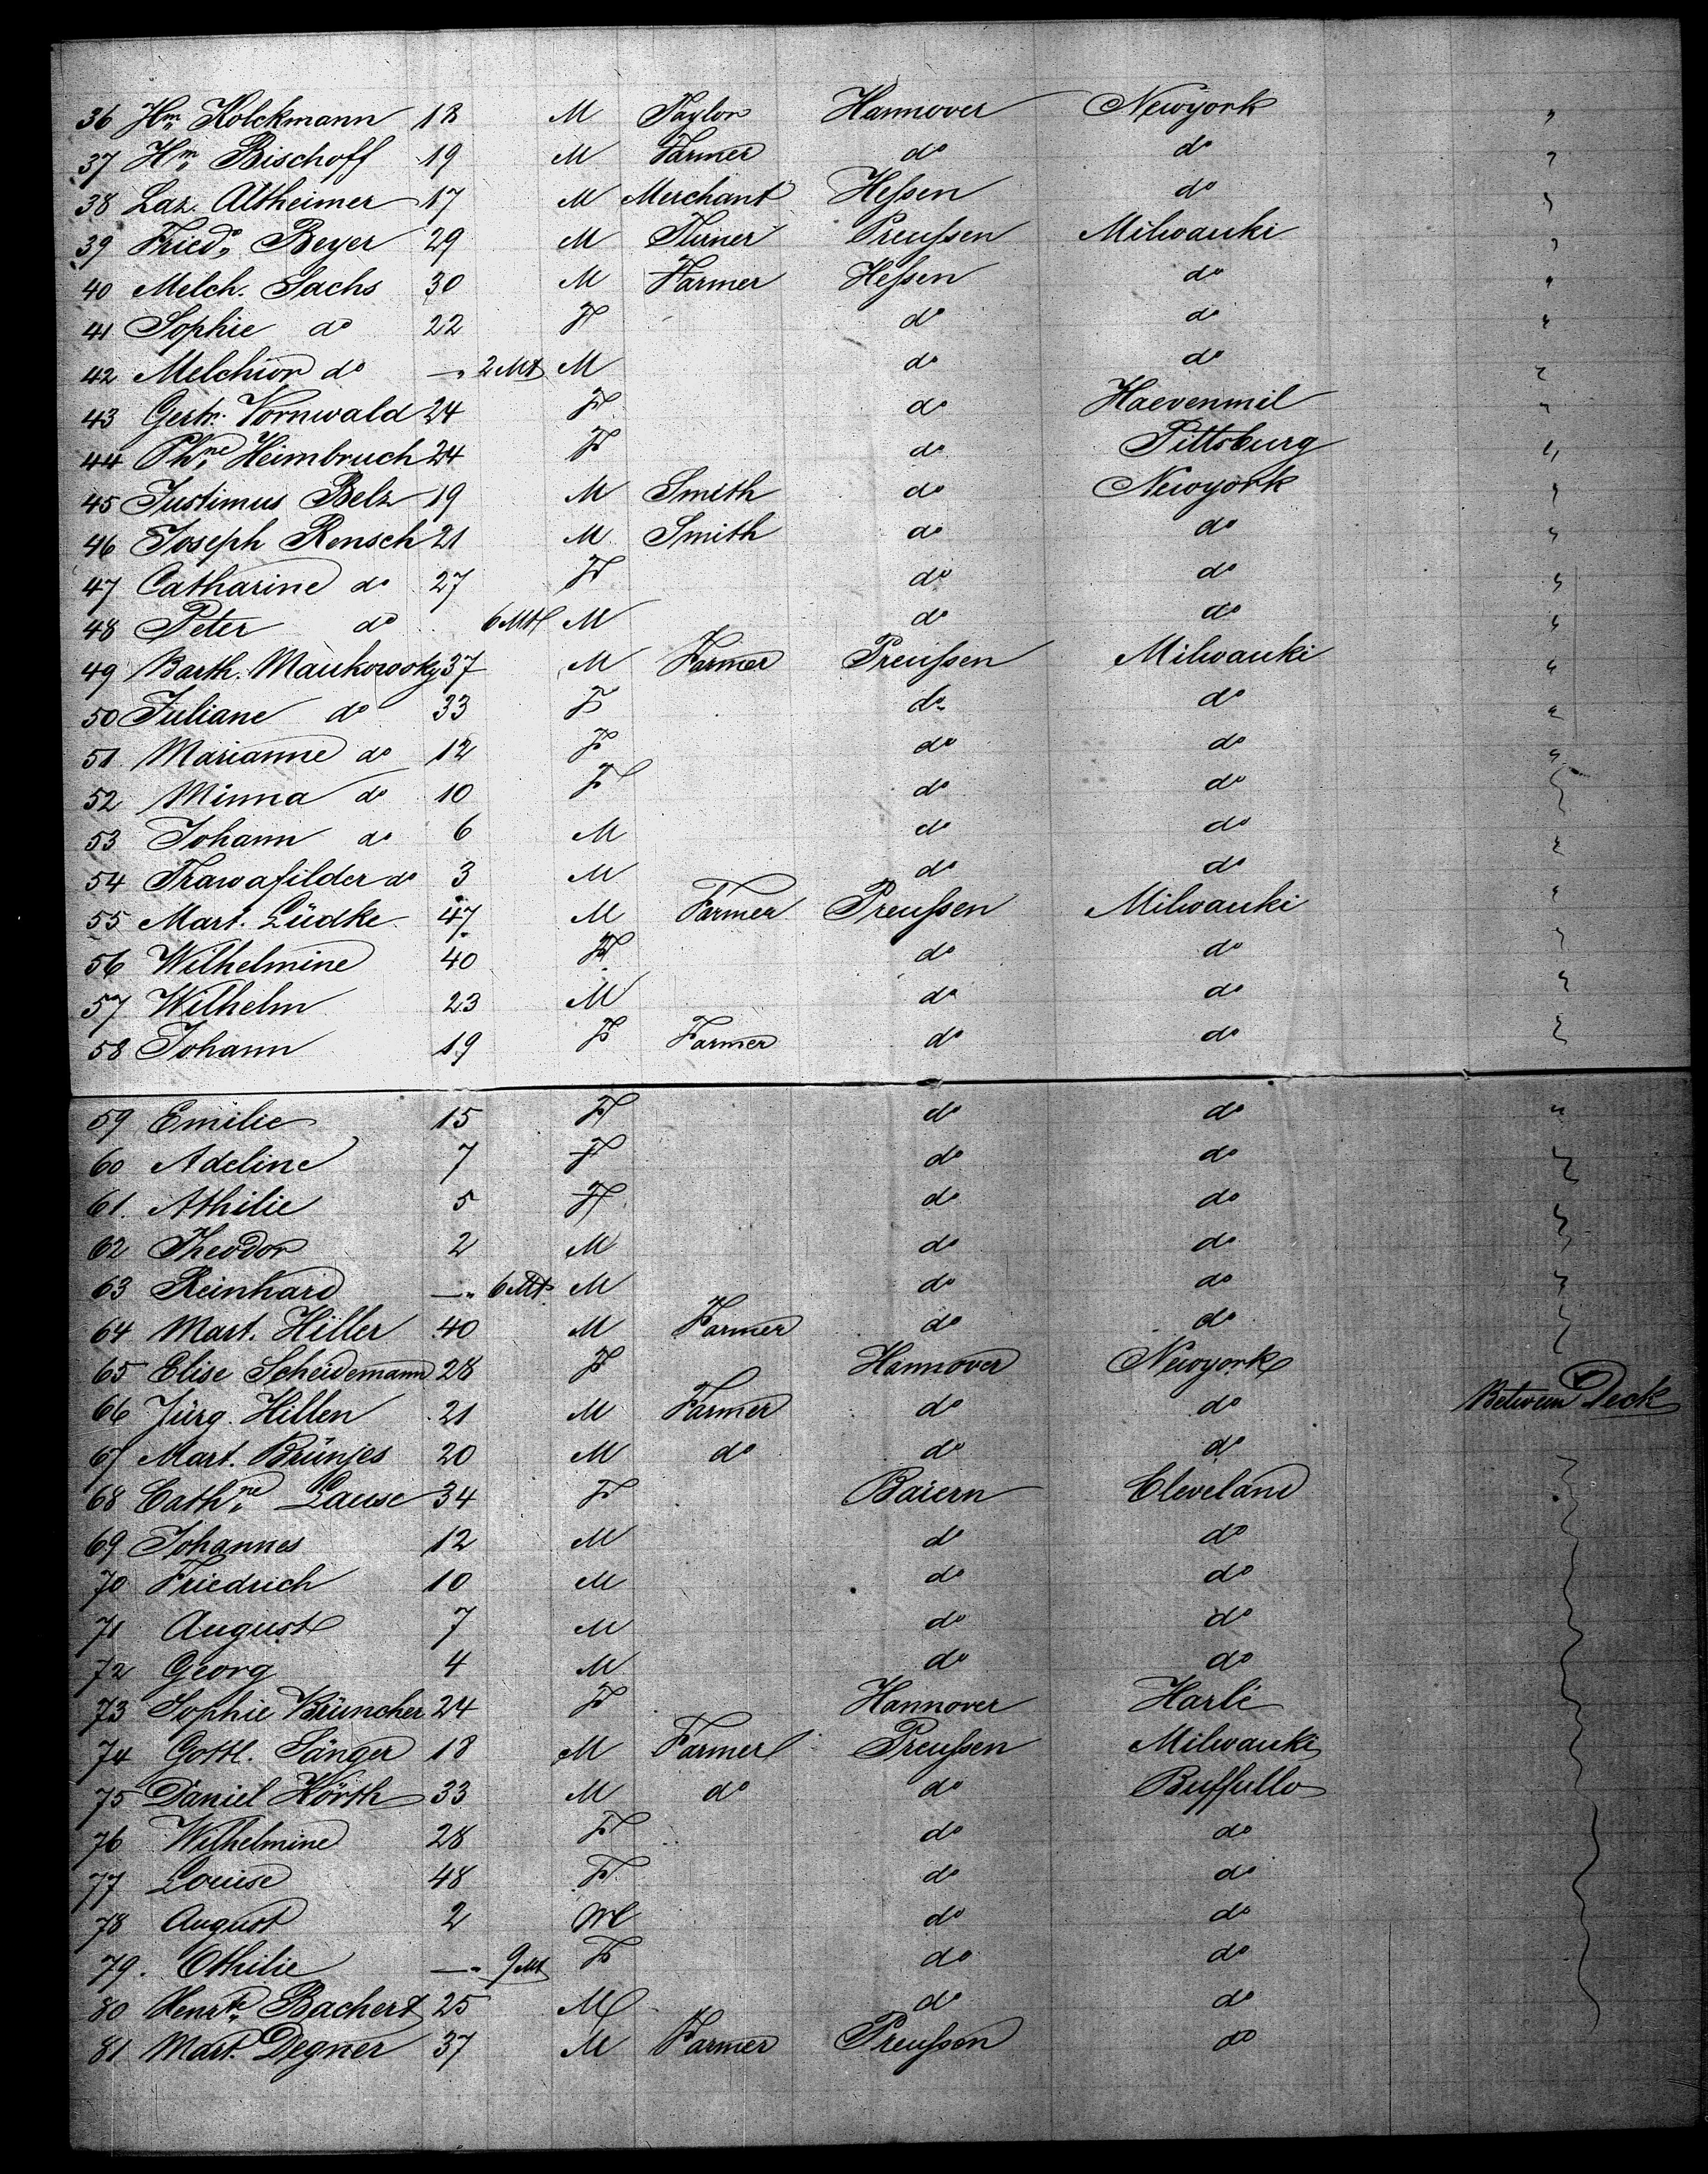 36 Hm. Kolckmann 18 M Taylor Hannover Newyork "
37 Hm. Bischoff 19 M Farmer do do "
38 Laz. Altheimer 17 M Merchant Heſsen do "
39 Fried. Beyer 29 M Preuſsen Milwauki "
40 Melch. Sachs 30 M Farmer Heſsen do "
41 Sophie do 22 F do do "
42 Melchior do —" 2 Mt M do do "
43 Gertr. Vornwald 24 F do Haevenmil "
44 Phne. Heimbruch 24 F do Pittsburg "
45 Justimus Belz 19 M Smith do Newyork "
46 Joseph Rensch 21 M Smith do do "
47 Catharine do 27 F do do "
48 Peter do 6 Mt M do do "
49 Barth. Maukowsky 37 M Farmer Preuſsen Milwauki "
50 Juliane do 33 F do do "
51 Marianne do 12 F do do "
52 Minna do 10 F do do "
53 Johann do 6 M do do "
54 do 3 M do do "
55 Mart. Lüdke 47 M Farmer Preuſsen Milwauki "
56 Wilhelmine 40 F do do "
57 Wilhelm 23 M do do "
58 Johann 19 F Farmer do do "
59 Emilie 15 F do do "
60 Adeline 7 F do do "
61. Athilie 5 F do do "
62 Theodor 2 M do do "
63 Reinhard —" 6 Mt M do do "
64 Mart. Hiller 40 M Farmer do do "
65 Elise Scheidemann 28 F Hannover Newyork
66 Jürg. Hillen 21 M Farmer do do Between Deck
67 Mart. Brünjes 20 M do do do
68 Cathne. Lause 34 F Baiern Cleveland
69 Johannes 12 M do do
70 Friedrich 10 M do do
71 August 7 M do do
72 Georg 4 M do do
73 Sophie Brüncher 24 F Hannover Harli
74 Gottl. Sänger 18 M Farmer Preuſsen Milwauki
75 Daniel Hörth 33 M do do Buffullo
76 Wilhelmine 28 F do do
77 Louise 48 F do do
78 August 2 M do do
79. Othilie —" 9 Mt F do do
80 Henrtte. Bachert 25 M do do
81 Mart. Degner 37 M Farmer Preuſsen do